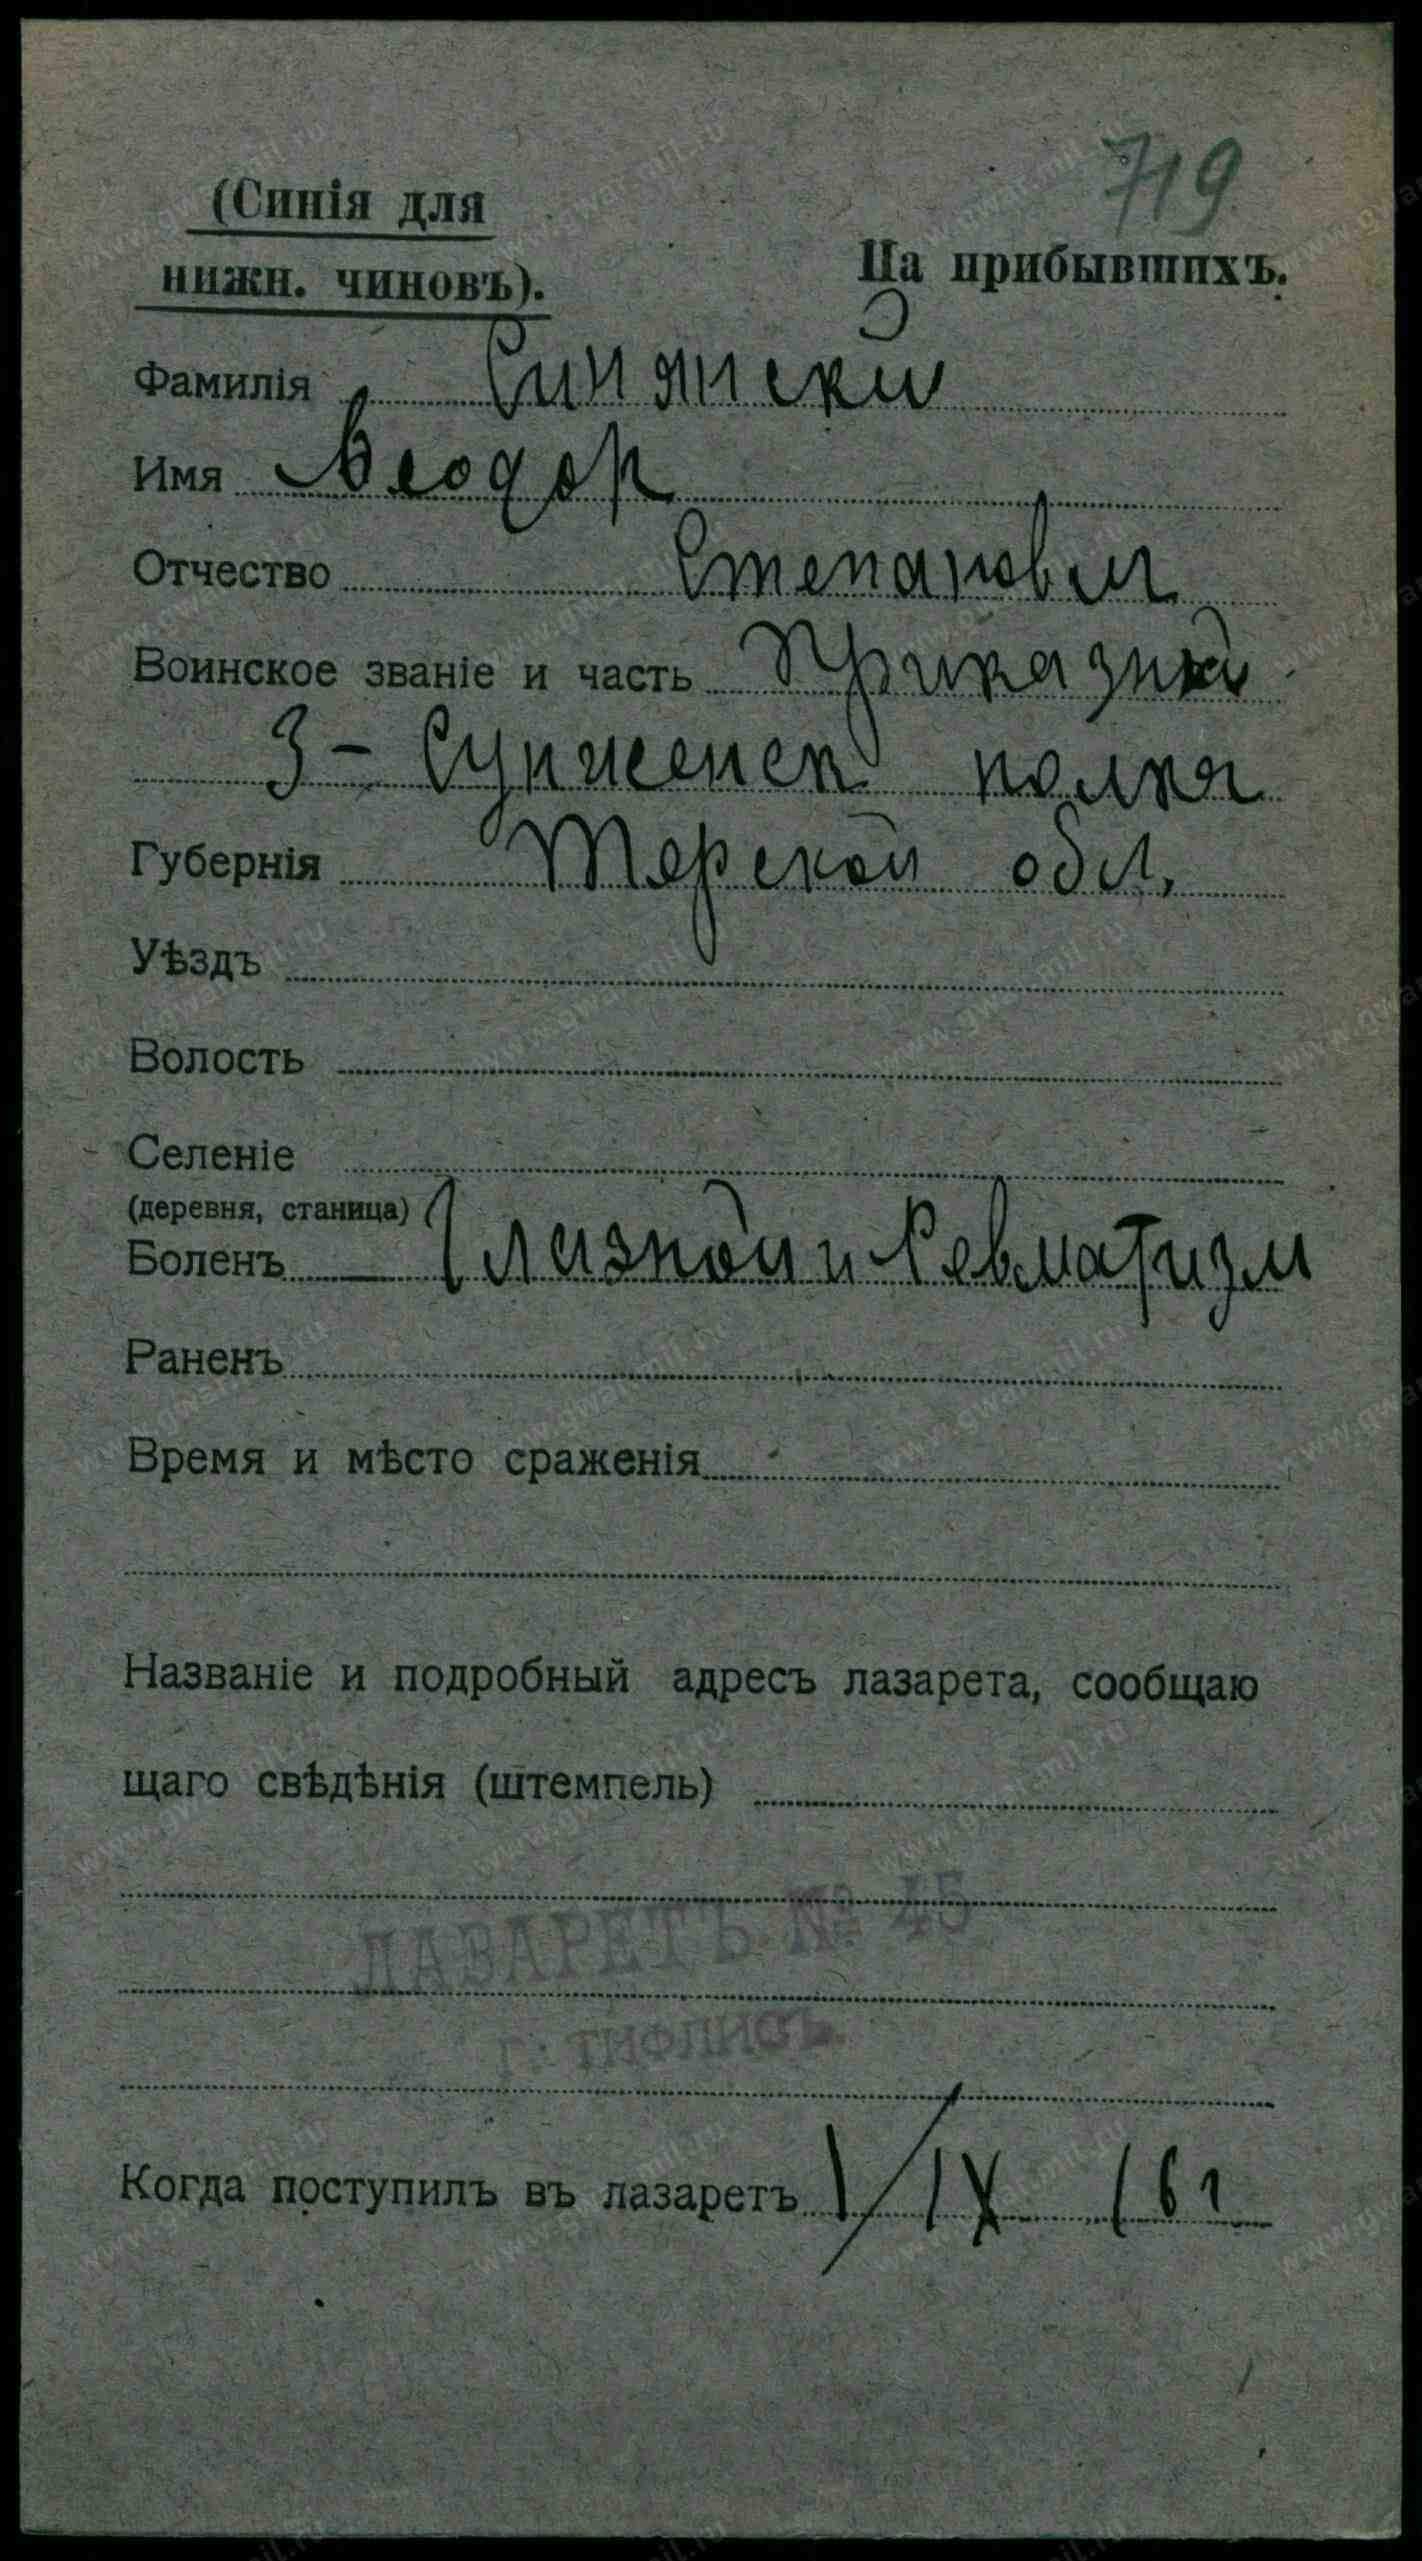 719
(Синія для
нижн. чиновъ).
На прибывшихъ.
Фамилія Синянский
Имя Ѳеодор
Отчество Степанович
Воинское званіе и часть Приказный
3 - Сунженск полка
Губернія Терской обл.
Уѣздъ
Волость
Селеніе
(деревня, станица)
Боленъ Глазной и Ревматизм
Раненъ
Время и мѣсто сраженія
Названіе и подробный адресъ лазарета, сообщаю
щаго свѣдѣнія (штемпель)
ЛАЗАРЕТЪ № 45
Г. ТИФЛИСЪ.
Когда поступилъ въ лазаретъ 1/IX 16 г